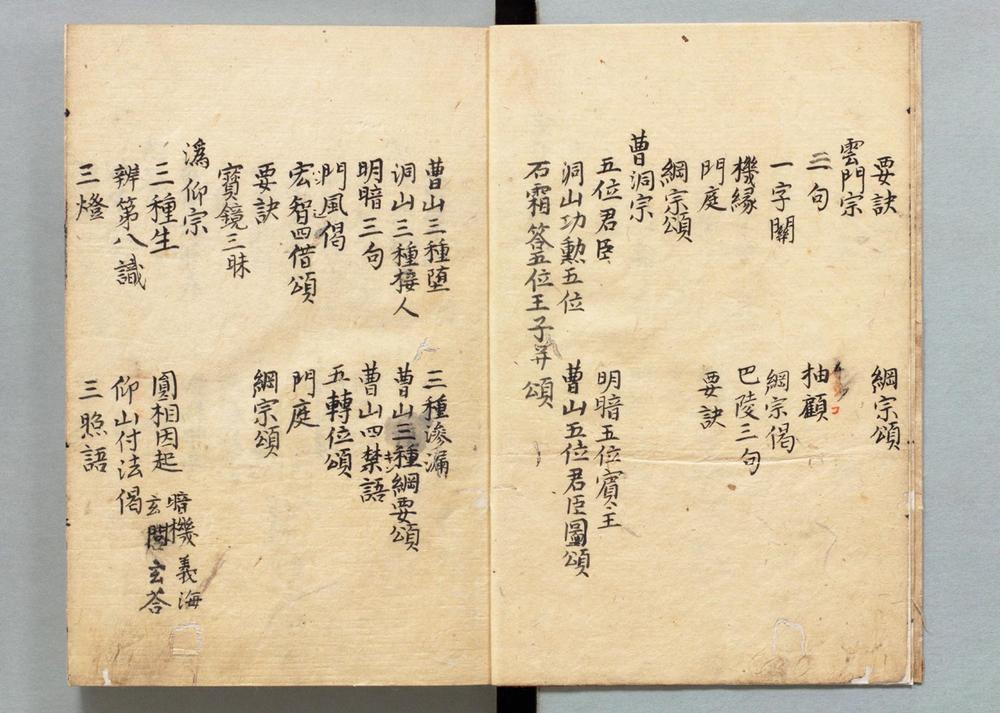 要訣　綱宗頌
雲門宗
三句　抽顧
一字關　綱宗偈
機縁　巴陵三句
門庭　要訣
綱宗頌
曹洞宗
五位君臣　明暗五位賓主
洞山功勲五位　曹山五位君臣圖頌
石霜答五位王子并頌
曹山三種堕　三種滲漏
洞山三種接人　曹山三種綱要頌
明暗三句　曹山四禁語
門風偈　五轉位頌
宏智四借頌　門庭
要訣　綱宗頌
寶鏡三昧
潙仰宗
三種生　圓相因起　暗機　義海
辨第八識　仰山付法偈　玄問玄答
三燈　三照語